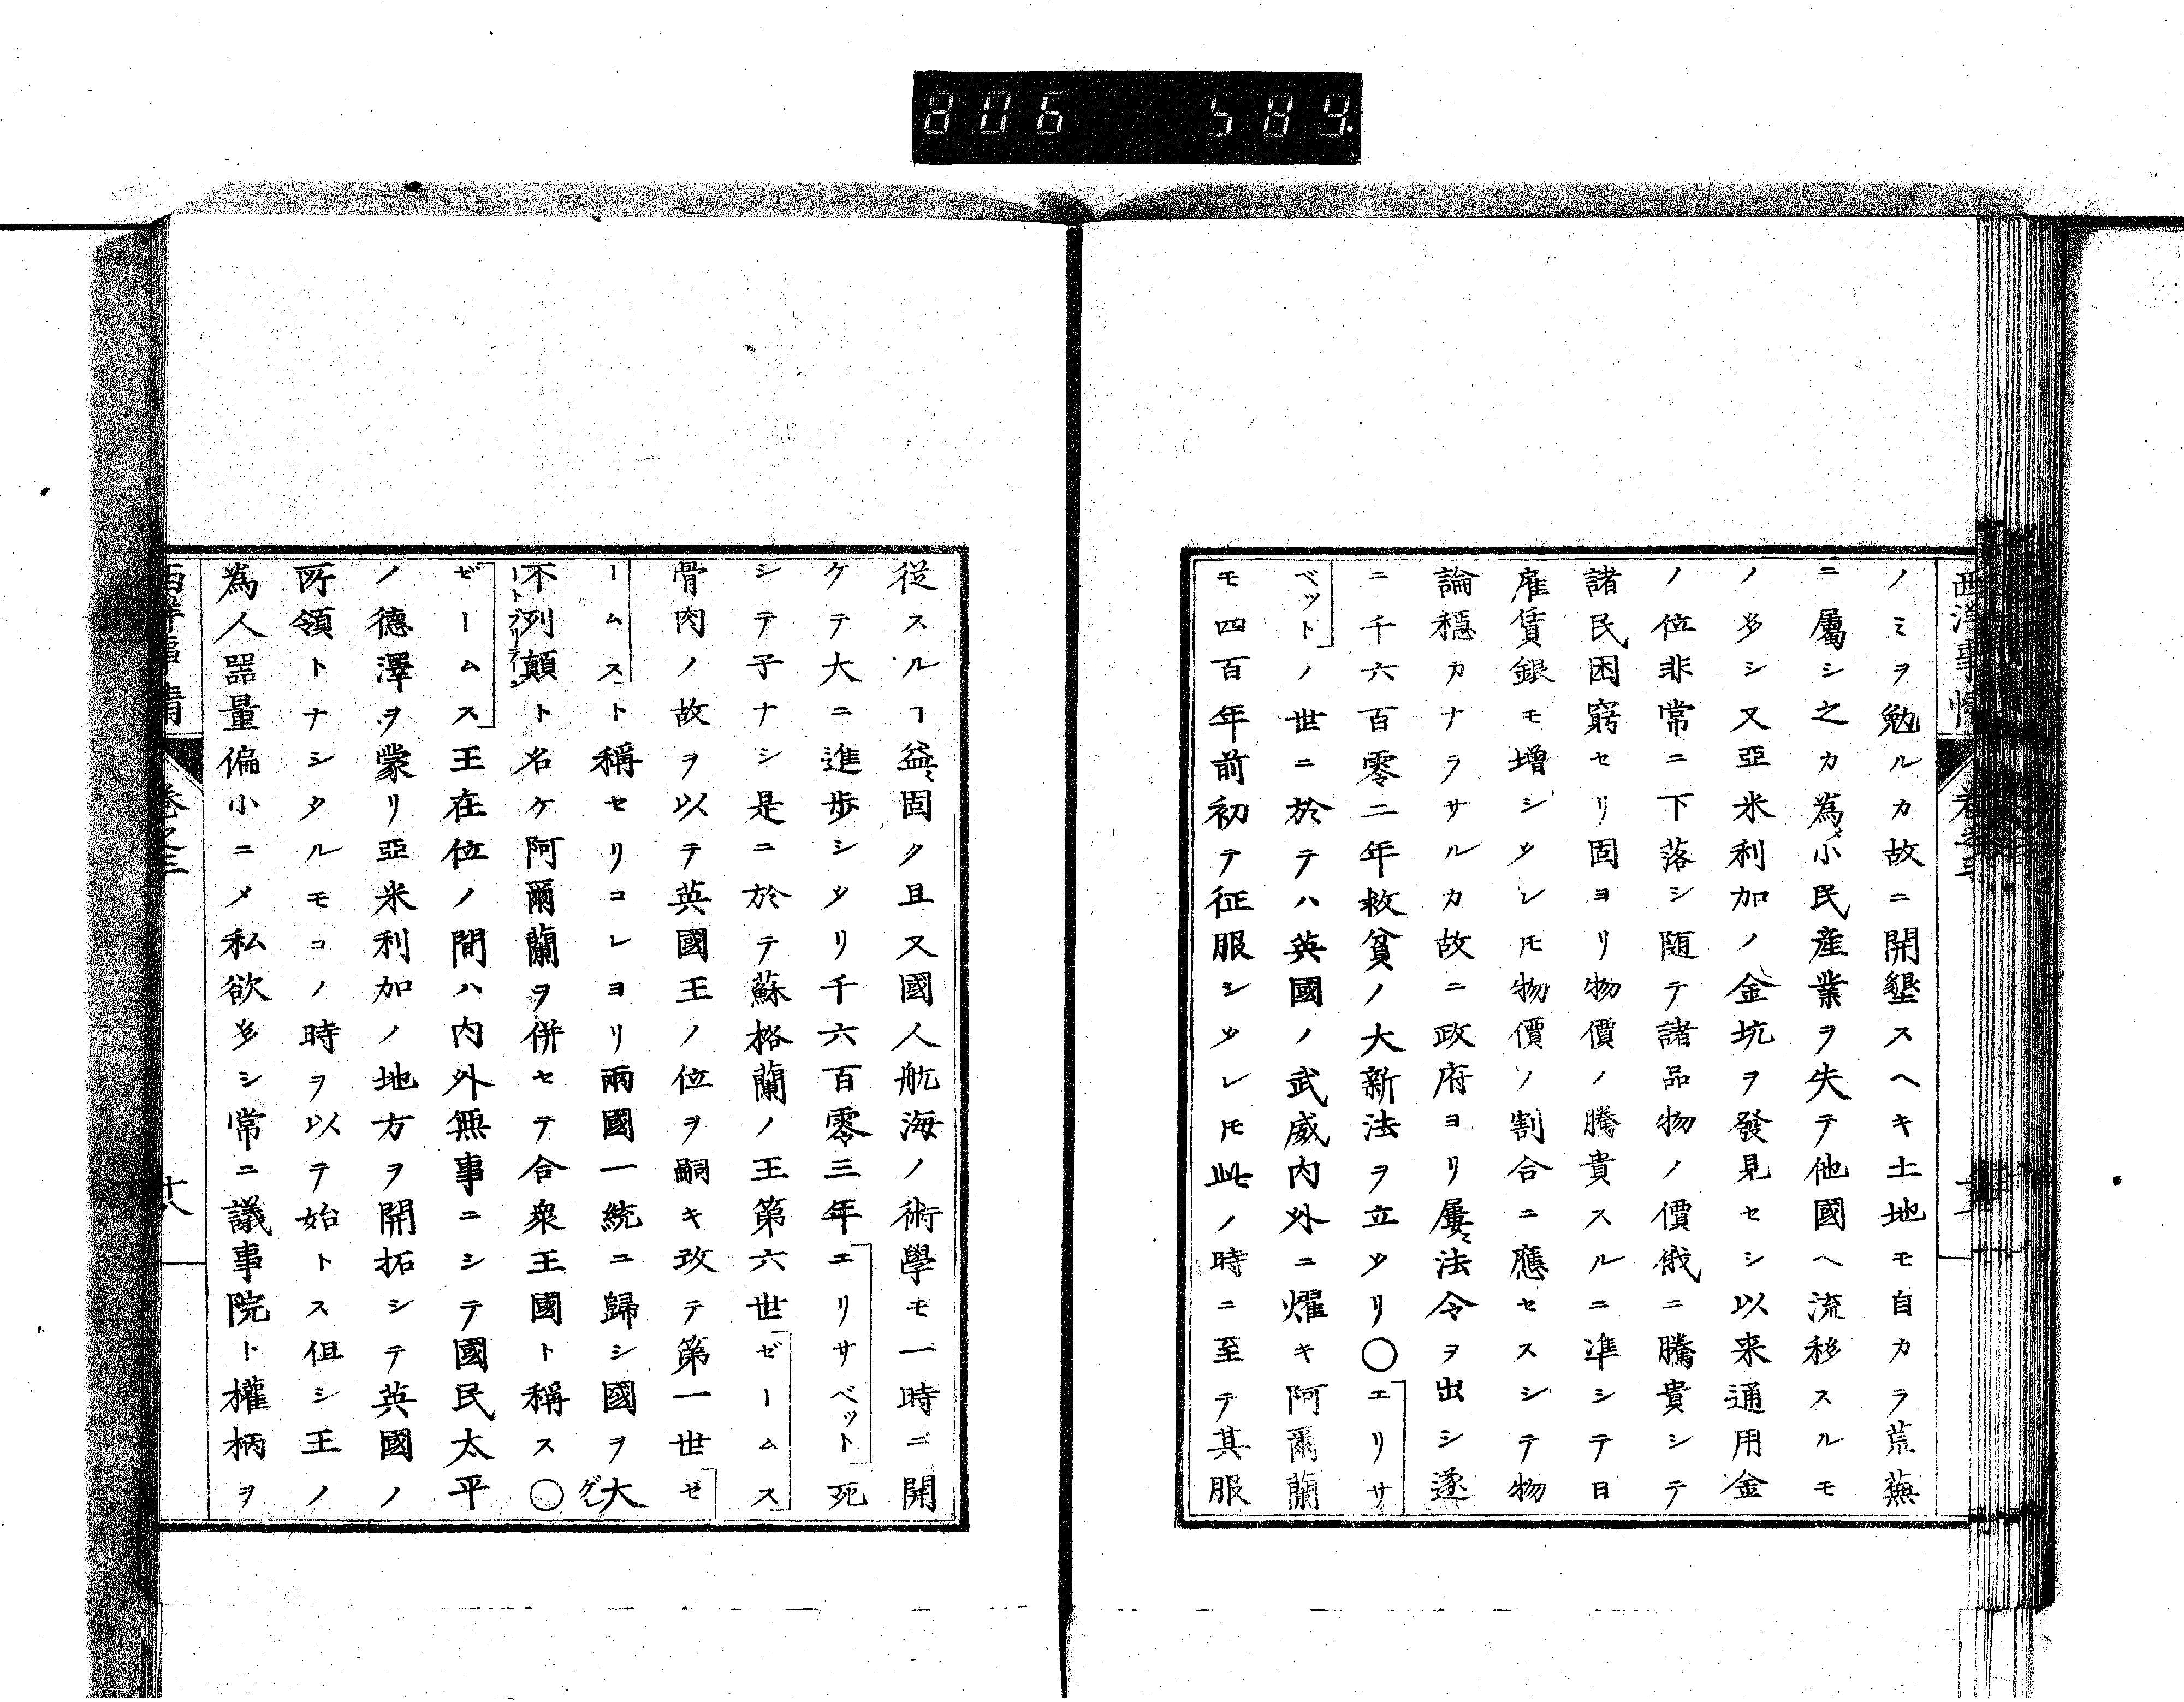 806 589.
西洋事情 卷之三
ノミヲ勉ルカ故ニ開墾スヘキ土地モ自カラ荒蕪
ニ屬シ之カ為メ小民産業ヲ失テ他國ヘ流移スルモ
ノ多シ又亞米利加ノ金坑ヲ發見セシ以来通用金
ノ位非常ニ下落シ随テ諸品物ノ價俄ニ騰貴シテ
諸民困窮セリ固ヨリ物價ノ騰貴スルニ準シテ日
雇賃銀モ増シタレ𪜈物價ノ割合ニ應セスシテ物
論穏カナラサルカ故ニ政府ヨリ屢〻法令ヲ出シ遂
ニ千六百零二年救貧ノ大新法ヲ立タリ〇エリサ
ベットノ世ニ於テハ英國ノ武威内外ニ燿キ阿爾蘭
モ四百年前初テ征服シタレ𪜈此ノ時ニ至テ其服
從スルヿ益〻固ク且又國人航海ノ術學モ一時ニ開
ケテ大ニ進歩シタリ千六百零三年エリサベット死
シテ子ナシ是ニ於テ蘇格蘭ノ王第六世ゼームス
骨肉ノ故ヲ以テ英國王ノ位ヲ嗣キ改テ第一世ゼ
ームスト稱セリコレヨリ兩國一統ニ歸シ國ヲ大
グレ
不列顛ト名ケ阿爾蘭ヲ併セテ合衆王國ト稱ス〇
ートブリテーン
ゼームス王在位ノ間ハ内外無事ニシテ國民太平
ノ德澤ヲ蒙リ亞米利加ノ地方ヲ開拓シテ英國ノ
所領トナシタルモコノ時ヲ以テ始トス但シ王ノ
為人器量偏小ニメ私欲多シ常ニ議事院ト權柄ヲ
西洋事情 卷之三 十八